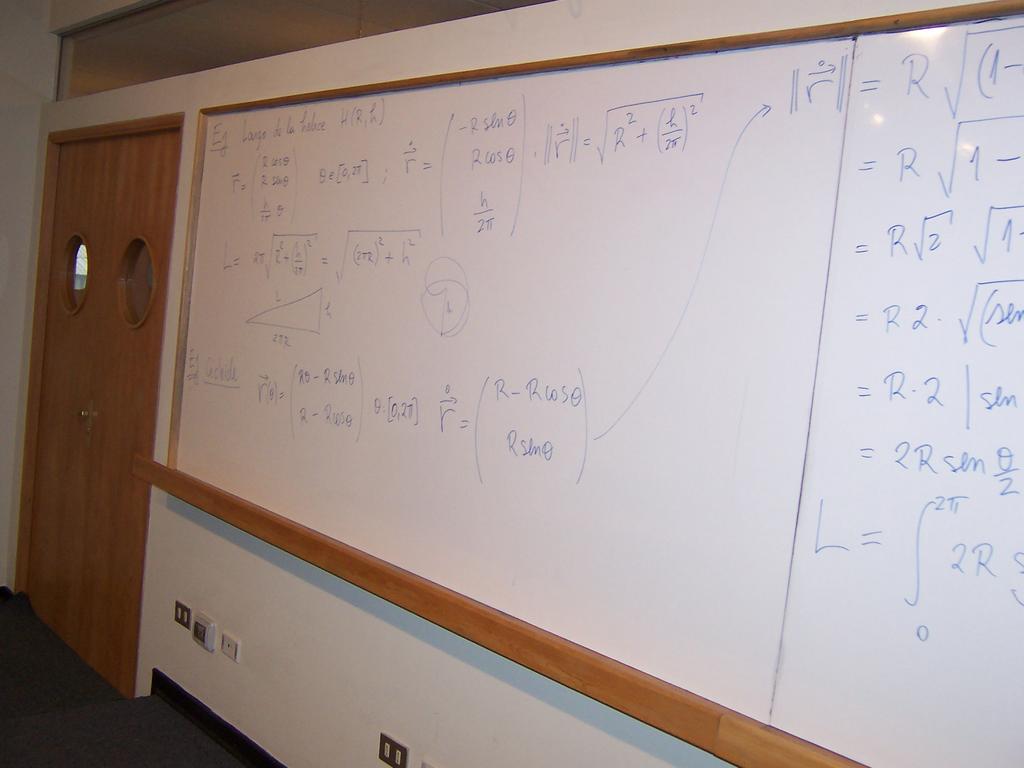 Ej Largo de la hélice H(R,h)
r⃗ = (R cosθ, R senθ, h/2π θ) θ∈[0,2π] ; r⃗° = (-R senθ, R cosθ, h/2π) . ‖r⃗°‖ = √(R² + (h/2π)²)
L = 2π√(R² + (h/2π)²) = √((2πR)² + h²)
L h
2πR
h
Ej cicloide
r⃗(θ) = (Rθ - R senθ, R - R cosθ) θ∈[0,2π] r⃗° = (R - R cosθ, R senθ)
‖r⃗°‖ = R √(1-
= R √1 -
= R√2 √1-
= R 2 · √(sen
= R·2 | sen
= 2R sen θ/2
L = ∫₀^2π 2R s